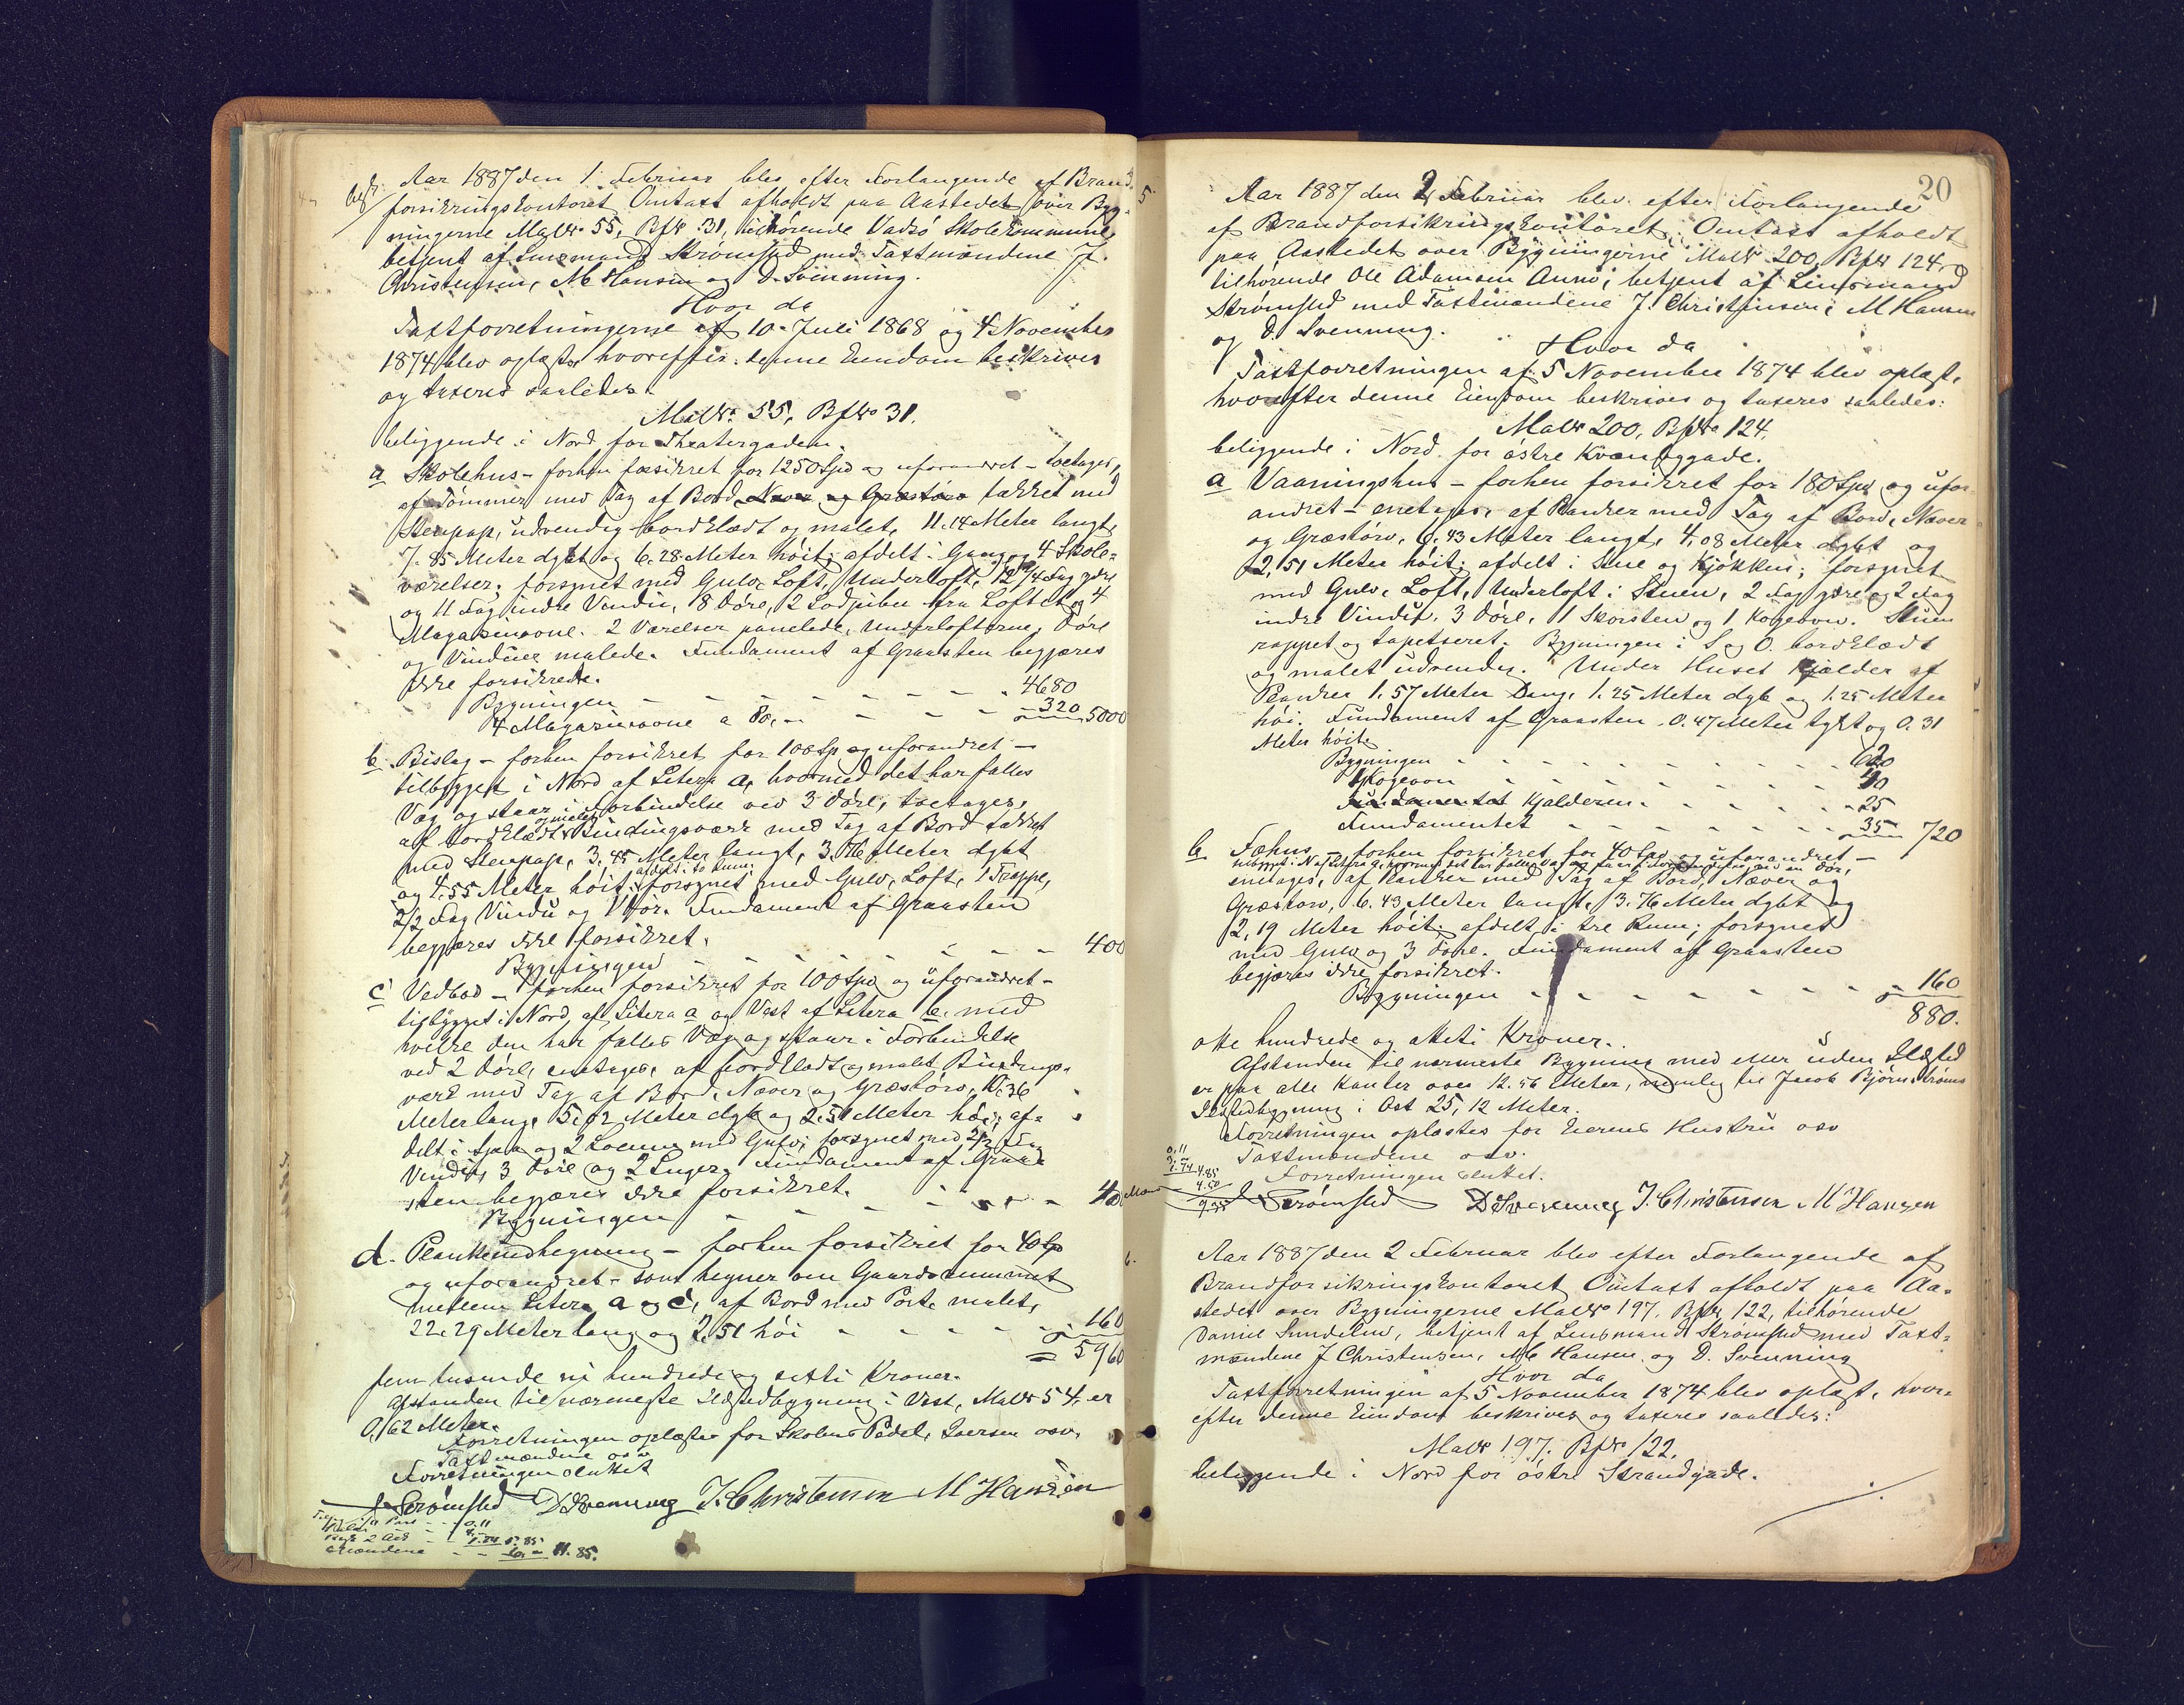 Aar 1887 den 1. Februar blev efter Forlangende af Brand-
forsikringskontoret Omtaxt afholdt paa Aastedet over Byg-
ningerne MalNo 55, BfNo 31, tilhørende Vadsø Skolekommune,
betjent af Lensmand Strømsted med Taxtmændene J.
Christensen, M Hansen og D. Svenning.
Hvor da
Taxtforretningerne af 10. Juli 1868 og 4 November
1874 blev oplæste, hvorefter denne Eiendom beskrives
og taxeres saaledes.
MalNo 55, BfNo 31.
beliggende i Nord for Theatergaden.
a Skolehus - forhen forsikret for 1250 Spd og uforandret - toetages,
af Tømmer med Tag af Bord, Næver og Græstørv takket med
Stenpap, udvendig bordklædt og malet, 11.14 Meter langt,
7.85 Meter dybt og 6.28 Meter høit; afdelt i Gang og 4 Skole-
værelser; forsynet med Gulv, Loft, Underloft, 12 1/4 Fag ydre
og 11 Fag indre Vindu, 8 Døre, 2 Lodpiber fra Loftet og 4
Magasinovne. 2 Værelser panelede, Underlofterne, Døre
og Vinduer malede. Fundament af Graasten begjæres
ikke forsikrede.
Bygningen - - - - 4680
4 Magasinovne a 80,- - - - 320 5000
b Bislag - forhen forsikret for 100 Sp og uforandret -
tilbygget i Nord af Litera a, hvormed det har fælles
Væg og staar i Forbindelse ved 3 Døre, toetages,
og malet
af bordklædt Bindingsværk med Tag af Bord takket
med Stenpap, 3.45 Meter langt, 3.76 Meter dybt
afdelt i to Rum;
og 4.55 Meter høit; forsynet med Gulv, Loft, 1 Trappe,
2/2 Fag Vindu og 1 Dør. Fundament af Graasten
begjæres ikke forsikret.
Bygningen - - - - 400
c Vedbod - forhen forsikret for 100 Spd og uforandret -
tilbygget i Nord af Litera a og Vest af Litera b, med
hvilke den har fælles Væg og staar i Forbindelse
ved 2 Døre, enetages, af bordklædt og malet Bindings-
værk med Tag af Bord, Næver og Græstørv, 10.36
Meter lang, 5.02 Meter dyb og 2.51 Meter høi; af-
delt i Gang og 2 Rum med Gulv; forsynet med 2/2 Fag
Vindu, 3 Døre og 2 Luger. Fundament af Graa-
sten begjæres ikke forsikret.
Bygningen - - - - 400
d. Plankeindhegning - forhen forsikret for 40 Sp
og uforandret - som hegner om Gaardsrummet
mellem Litera a og c, af Bord med Port, malet,
22.29 Meter lang og 2.51 høi - - - 160
= 5960
fem tusende ni hundrede og sexti Kroner.
Afstanden til nærmeste Ildstedbygning i Vest, MalNo 54, er
0,62 Meter.
Forretningen oplæstes for Skolens Pedel, Iversen osv.
Taxtmændene osv.
Forretningen sluttet
Strømsted D Svenning J. Christensen M Hansen
0.11
11.85.
20
Aar 1887 den 2 Februar blev efter Forlangende
af Brandforsikringskontoret Omtaxt afholdt
paa Aastedet over Bygningerne MalNo 200, BfNo 124,
tilhørende Ole Adamsen Annö, betjent af Lensmand
Strømsted med Taxtmændene J. Christensen, M Hansen
og D. Svenning.
Hvor da
Taxtforretningen af 5 November 1874 blev oplæst,
hvorefter denne Eiendom beskrives og taxeres saaledes:
MalNo 200, BfNo 124.
beliggende i Nord for østre Kvænbygade.
a Vaaningshus - forhen forsikret for 180 Spd og ufor-
andret - enetages, af Planker med Tag af Bord, Næver
og Græstørv, 6.43 Meter langt, 4.08 Meter dybt og
2.51 Meter høit; afdelt i Stue og Kjøkken; forsynet
med Gulv, Loft, Underloft i Stuen, 2 Fag ydre og 2 Fag
indre Vindu, 3 Døre, 1 Skorsten og 1 Kogeovn. Stuen
rappet og tapetseret. Bygningen i S og O. bordklædt
og malet udvendig. Under Huset Kjælder af
Planker 1.57 Meter lang, 1.25 Meter dyb og 1.25 Meter
høi. Fundament af Graasten 0.47 Meter tykt og 0.31
Meter høit
Bygningen - - - - 620
Kogeovn - - - - 40
Fundamentet Kjælderen - - - - 25
Fundamentet - - - - 35 720
b Fæhus - forhen forsikret for 40 Spd og uforandret -
enetages, af Planker med Tag af Bord, Næver og
Græstørv, 6.43 Meter langt, 3.76 Meter dybt og
2,19 Meter høit; afdelt i tre Rum; forsynet
med Gulv og 3 Døre. Fundament af Graasten
begjæres ikke forsikret.
Bygningen - - - - 160
880.
otte hundrede og otteti Kroner.
Afstanden til nærmeste Bygning med eller uden Ildsted
er paa alle Kanter over 12.56 Meter, nemlig til Jacob Bjørnstrøms
Ildstedbygning i Ost 25,12 Meter.
Forretningen oplæstes for Eierens Hustru osv
Taxtmændene osv.
Forretningen sluttet.
Strømsted D Svenning J. Christensen M Hansen
Aar 1887 den 2 Februar blev efter Forlangende af
Brandforsikringskontoret Omtaxt afholdt paa Aa-
stedet over Bygningerne MalNo 197, BfNo 122, tilhørende
Daniel Sundelin, betjent af Lensmand Strømsted med Taxt-
mændene J Christensen, M Hansen og D. Svenning
Hvor da
Taxtforretningen af 5 November 1874 blev oplæst, hvor-
efter denne Eiendom beskrives og taxeres saaledes:
MalNo 197. BfNo 122.
beliggende i Nord for østre Strandgade.